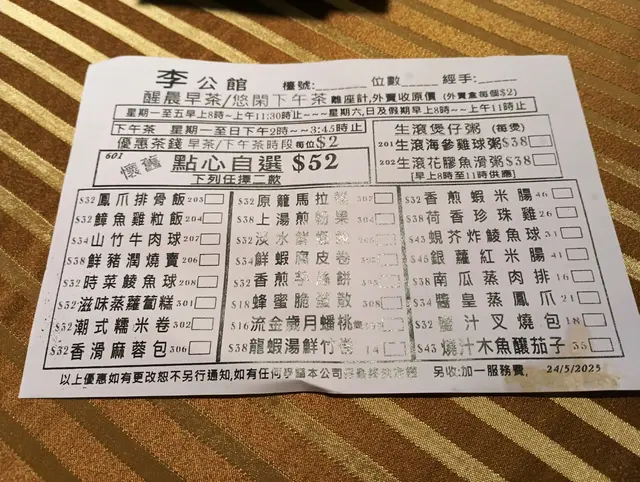 李公館 檯號:______ 位數______ 經手:______
醒晨早茶/悠閑下午茶 離座計,外賣收原價 (外賣盒每個$2)
星期一至五早上8時~上午11:30時止~~~星期六,日及假期早上8時~~上午11時止
下午茶 星期一至日下午2時~3:45時止
優惠茶錢 早茶/下午茶時段 每位$2
601 懷舊 點心自選 $52
下列任擇二款
生滾煲仔粥 (每煲)
201 生滾海參雞球粥 $38
202 生滾花膠魚滑粥 $38
[早上8時至11時供應]
$32 鳳爪排骨飯 203
$32 鱆魚雞粒飯 204
$34 山竹牛肉球 207
$38 鮮豬潤燒賣 206
$32 時菜鯪魚球 208
$32 滋味蒸蘿蔔糕 301
$32 潮式糯米卷 302
$32 香滑麻蓉包 306
$32 原籠馬拉 307
$38 上湯煎粉果 304
$32 淡水
$34 鮮蝦腐皮卷
$32 香煎 餅
$18 蜂蜜脆蛋散 308
$16 流金歲月蟠桃
$38 龍蝦湯鮮竹卷 14
$32 香煎蝦米腸 46
$38 荷香珍珠雞 26
$43 蜆芥炸鯪魚球 31
$45 銀蘿紅米腸 41
$38 南瓜蒸肉排 16
$34 醬皇蒸鳳爪 21
$32 蜜汁叉燒包 18
$43 燒汁木魚釀茄子 35
以上優惠如有更改恕不另行通知,如有任何爭議本公司 另收:加一服務費, 24/5/2025